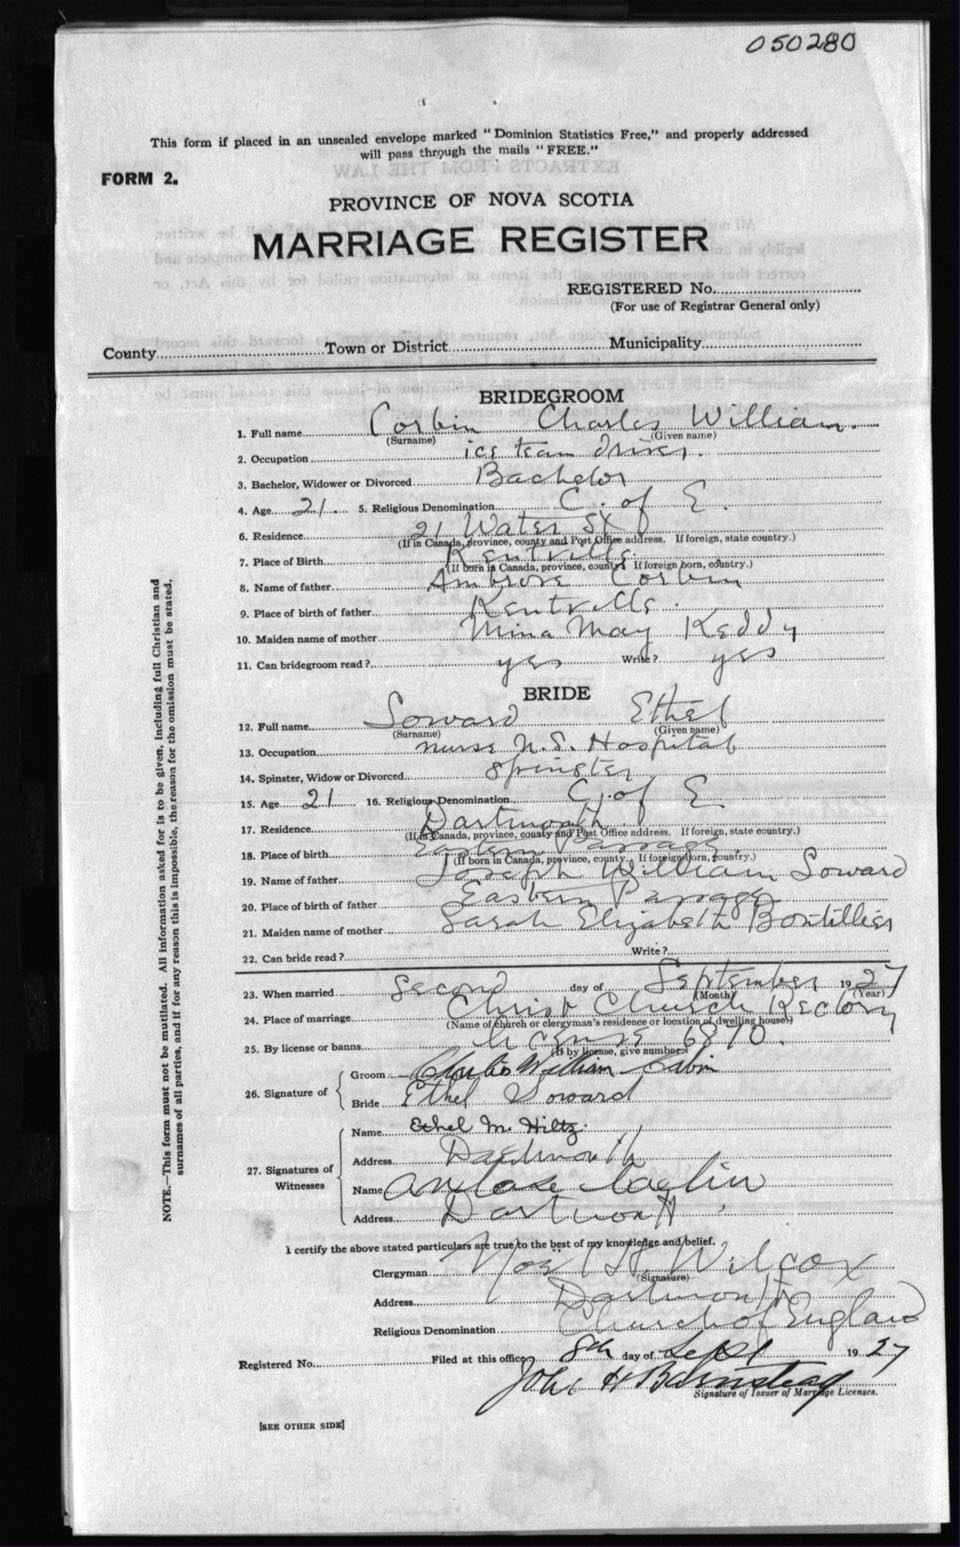 050280
This form if placed in an unsealed envelope marked "Dominion Statistics Free," and properly addressed
will pass through the mails "FREE."
FORM 2.
PROVINCE OF NOVA SCOTIA
MARRIAGE REGISTER
REGISTERED No.
(For use of Registrar General only)
County Town or District Municipality
BRIDEGROOM
1. Full name Corbin Charles William.
(Surname) (Given name)
2. Occupation ice team driver.
3. Bachelor, Widower or Divorced Bachelor
4. Age 21. 5. Religious Denomination C. of E.
6. Residence 21 Water St
(If in Canada, province, county and Post Office address. If foreign, state country.)
7. Place of Birth Kentville.
(If born in Canada, province, county. If foreign born, country.)
8. Name of father Ambrose Corbin
9. Place of birth of father Kentville.
10. Maiden name of mother Mina May Keddy
11. Can bridegroom read? yes Write? yes
BRIDE
12. Full name Soward Ethel
(Surname) (Given name)
13. Occupation nurse N.S. Hospital
14. Spinster, Widow or Divorced Spinster
15. Age 21 16. Religious Denomination C. of E
17. Residence Dartmouth
(If in Canada, province, county and Post Office address. If foreign, state country.)
18. Place of birth Eastern Passage
(If born in Canada, province, county. If foreign born, country.)
19. Name of father Joseph William Soward
20. Place of birth of father Eastern Passage
21. Maiden name of mother Sarah Elizabeth
22. Can bride read? Write?
23. When married Second day of September 1927
(Month) (Year)
24. Place of marriage Christ Church Rectory
(Name of church or clergyman's residence or location of dwelling house)
25. By license or banns license 6870.
(If by license, give number)
26. Signature of
Groom Charles William Corbin
Bride Ethel Soward
27. Signatures of Witnesses
Name Ethel M. Hiltz.
Address Dartmouth
Name
Address Dartmouth
I certify the above stated particulars are true to the best of my knowledge and belief.
Clergyman Noel H. Wilcox
(Signature)
Address Dartmouth
Religious Denomination Church of England
Registered No. Filed at this office 8th day of Sept 1927
John H Barnstead
Signature of Issuer of Marriage Licenses.
[SEE OTHER SIDE]
NOTE.—This form must not be mutilated. All information asked for is to be given, including full Christian and
surnames of all parties, and if for any reason this is impossible, the reason for the omission must be stated.